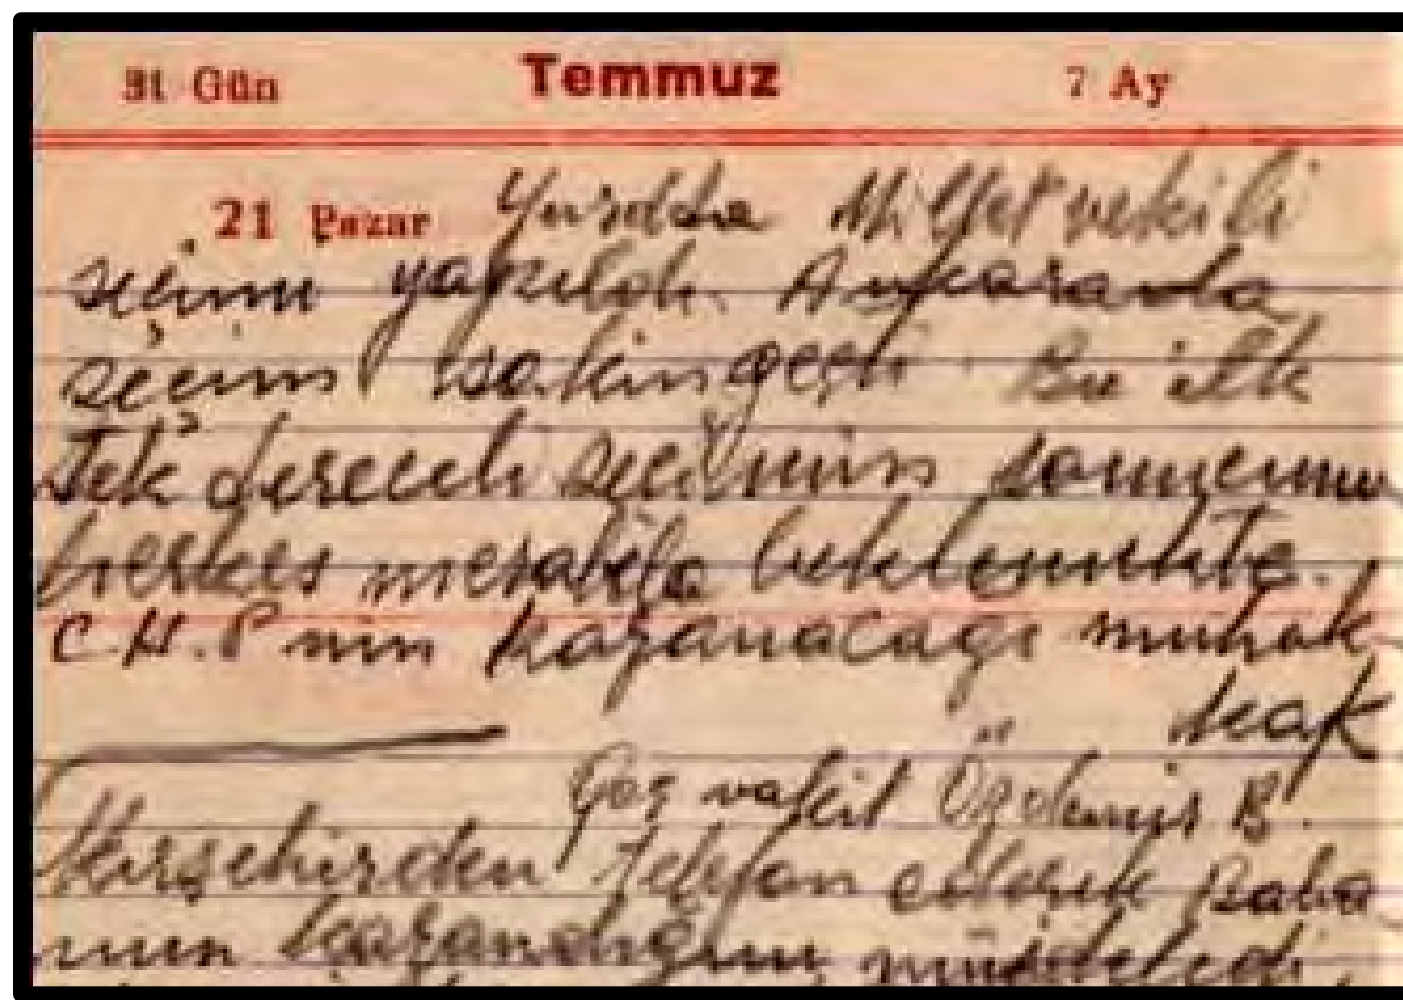 31 Gün Temmuz 7 Ay
21 Pazar Yurdda Milletvekili
seçimi yapıldı. Ankarada
seçim sakin geçti. Bu ilk
Tek dereceli seçimin sonucunu
herkes merakla beklemekte.
C.H.P nin kazanacağı muhak-
kak
Geç vakit Özdemir B.
Kırşehirden telefon ederek Baba
nın kazandığını müjdeledi.